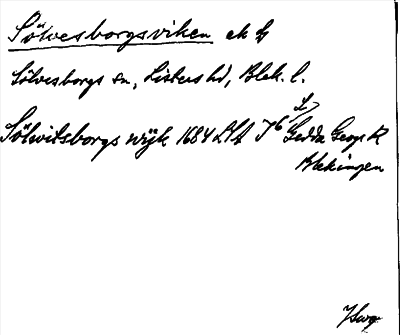 Sölvesborgsviken ek h
Sölvesborgs sn, Listers hd, Blek. l.
Sölwitsborgs wijk 1684 LSA I 6 Gedda Geogr
Blekingen